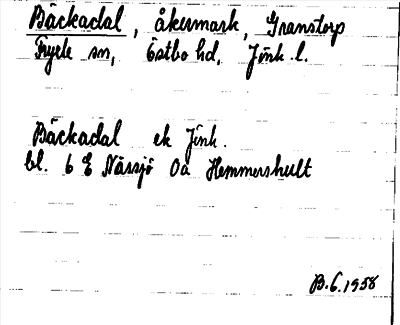 Bäckadal, åkermark, Granstorp
Tryele sn, Östbo hd, Jönk. l.
Bäckadal ek Jönk.
bl. 6 E Nässjö Oa Hemmershult
B.6.1958